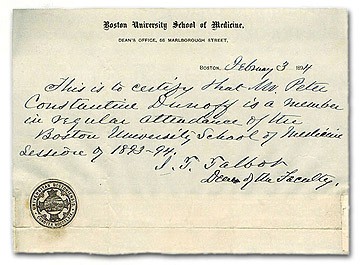 Boston University School of Medicine,
DEAN'S OFFICE, 66 MARLBOROUGH STREET,
BOSTON, February 3 1894
This is to certify that Mr. Peter
Constantine Dunoff is a member
in regular attendance of the
Boston University School of Medicine
session of 1893-94.
I. T. Talbot
Dean of the Faculty.